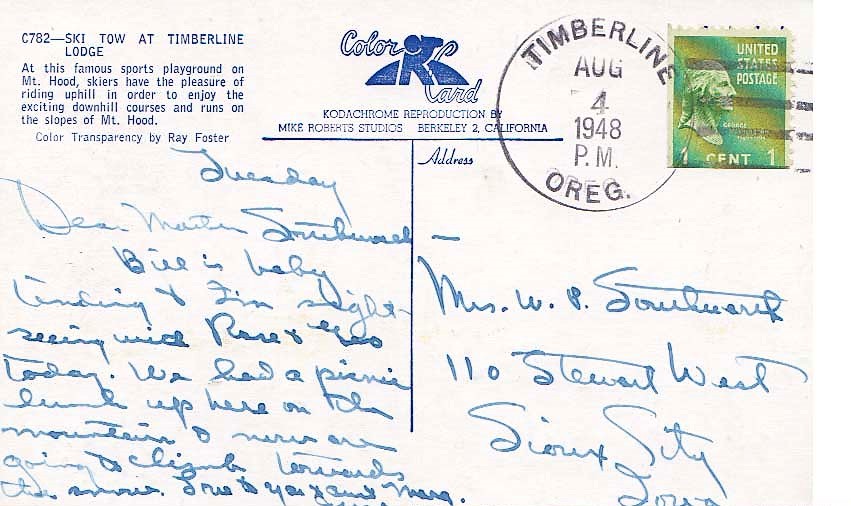 C782—SKI TOW AT TIMBERLINE
LODGE
At this famous sports playground on
Mt. Hood, skiers have the pleasure of
riding uphill in order to enjoy the
exciting downhill courses and runs on
the slopes of Mt. Hood.
Color Transparency by Ray Foster
Color
Card
KODACHROME REPRODUCTION BY
MIKE ROBERTS STUDIOS BERKELEY 2, CALIFORNIA
TIMBERLINE
AUG
4
1948
P.M.
OREG.
UNITED
STATES
POSTAGE
GEORGE
1 CENT 1
Address
Tuesday
Dear Southworth —
Bill is baby
tending & I'm sight-
seeing with Rose & Geo
today. We had a picnic
lunch up here on the
mountain & now are
going to climb towards
the snow. Love to you & aunt
Mrs. W. P. Southworth
110 Stewart West
Sioux City
Iowa